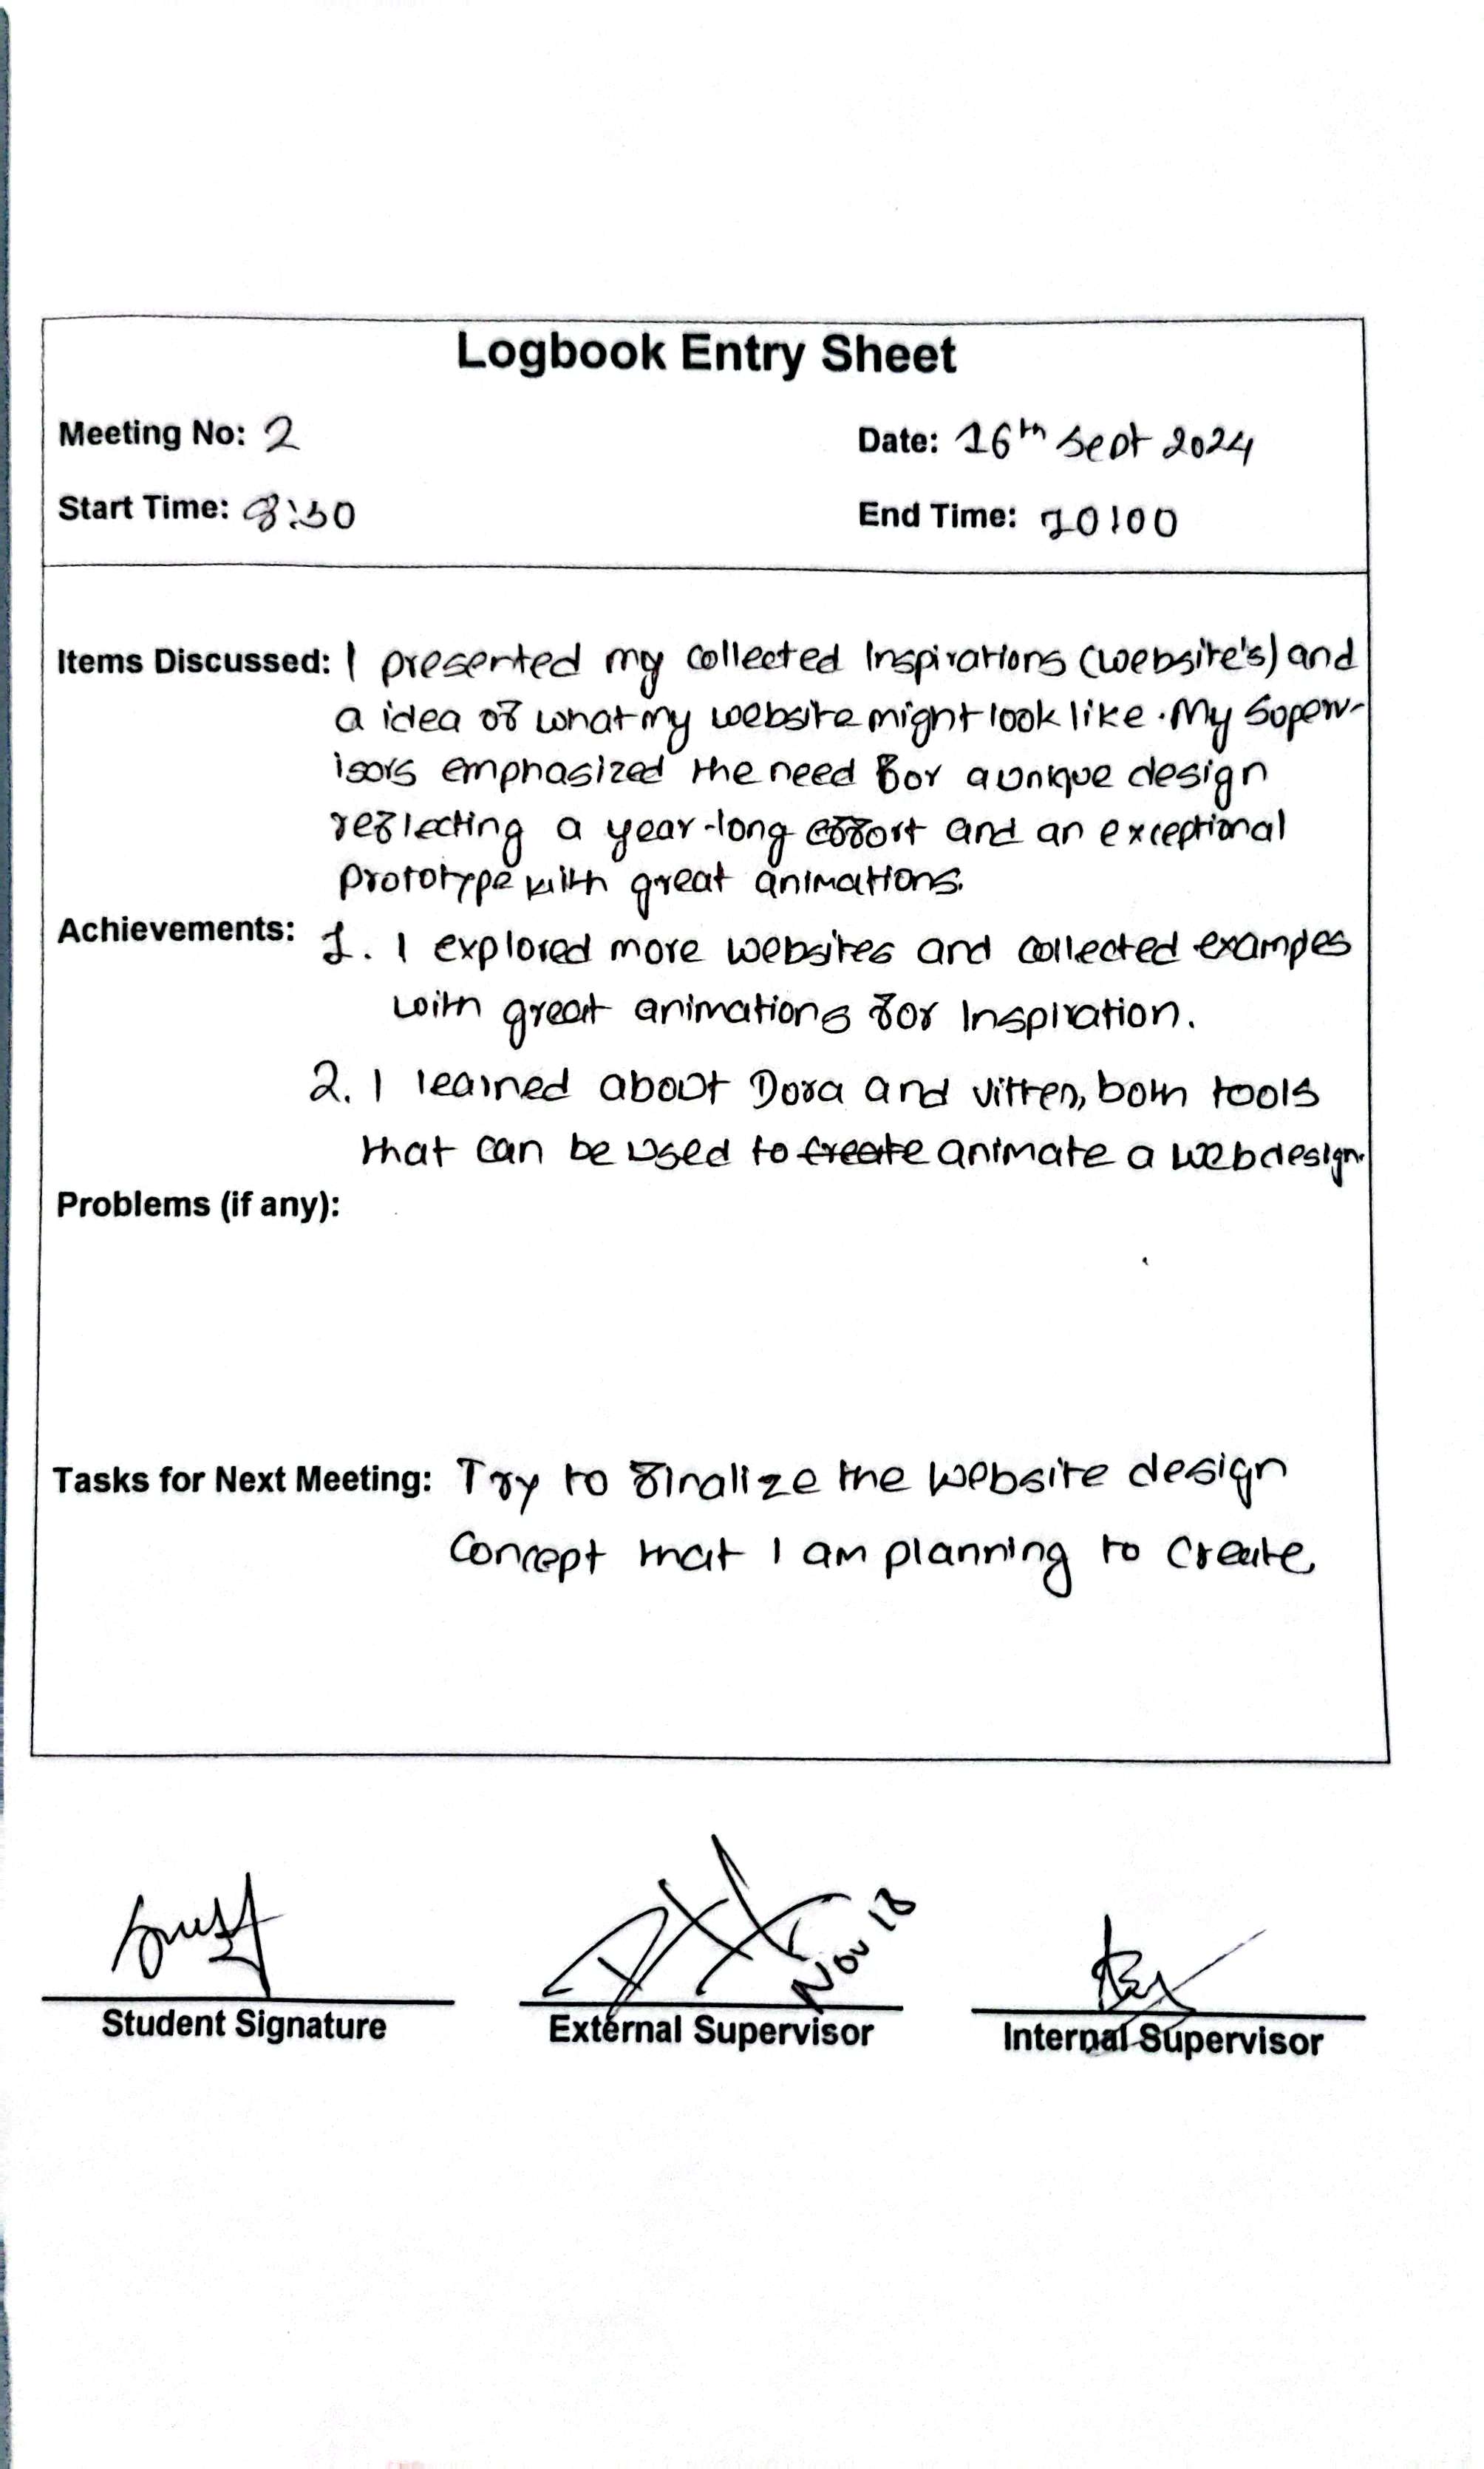 Logbook Entry Sheet
Meeting No: 2
Date: 16th Sept 2024
Start Time: 8:30
End Time: 10:00
Items Discussed: I presented my collected Inspirations (website's) and
a idea of what my website might look like. My Superv-
isors emphasized the need For a unique design
reflecting a year-long effort and an exceptional
prototype with great animations.
Achievements: 1. I explored more websites and collected exampes
with great animations for Inspiration.
2. I learned about Dora and Jitter, both tools
that can be used to create animate a webdesign.
Problems (if any):
Tasks for Next Meeting: Try to finalize the website design
Concept that I am planning to create.
Nov 18
Student Signature
External Supervisor
Internal Supervisor